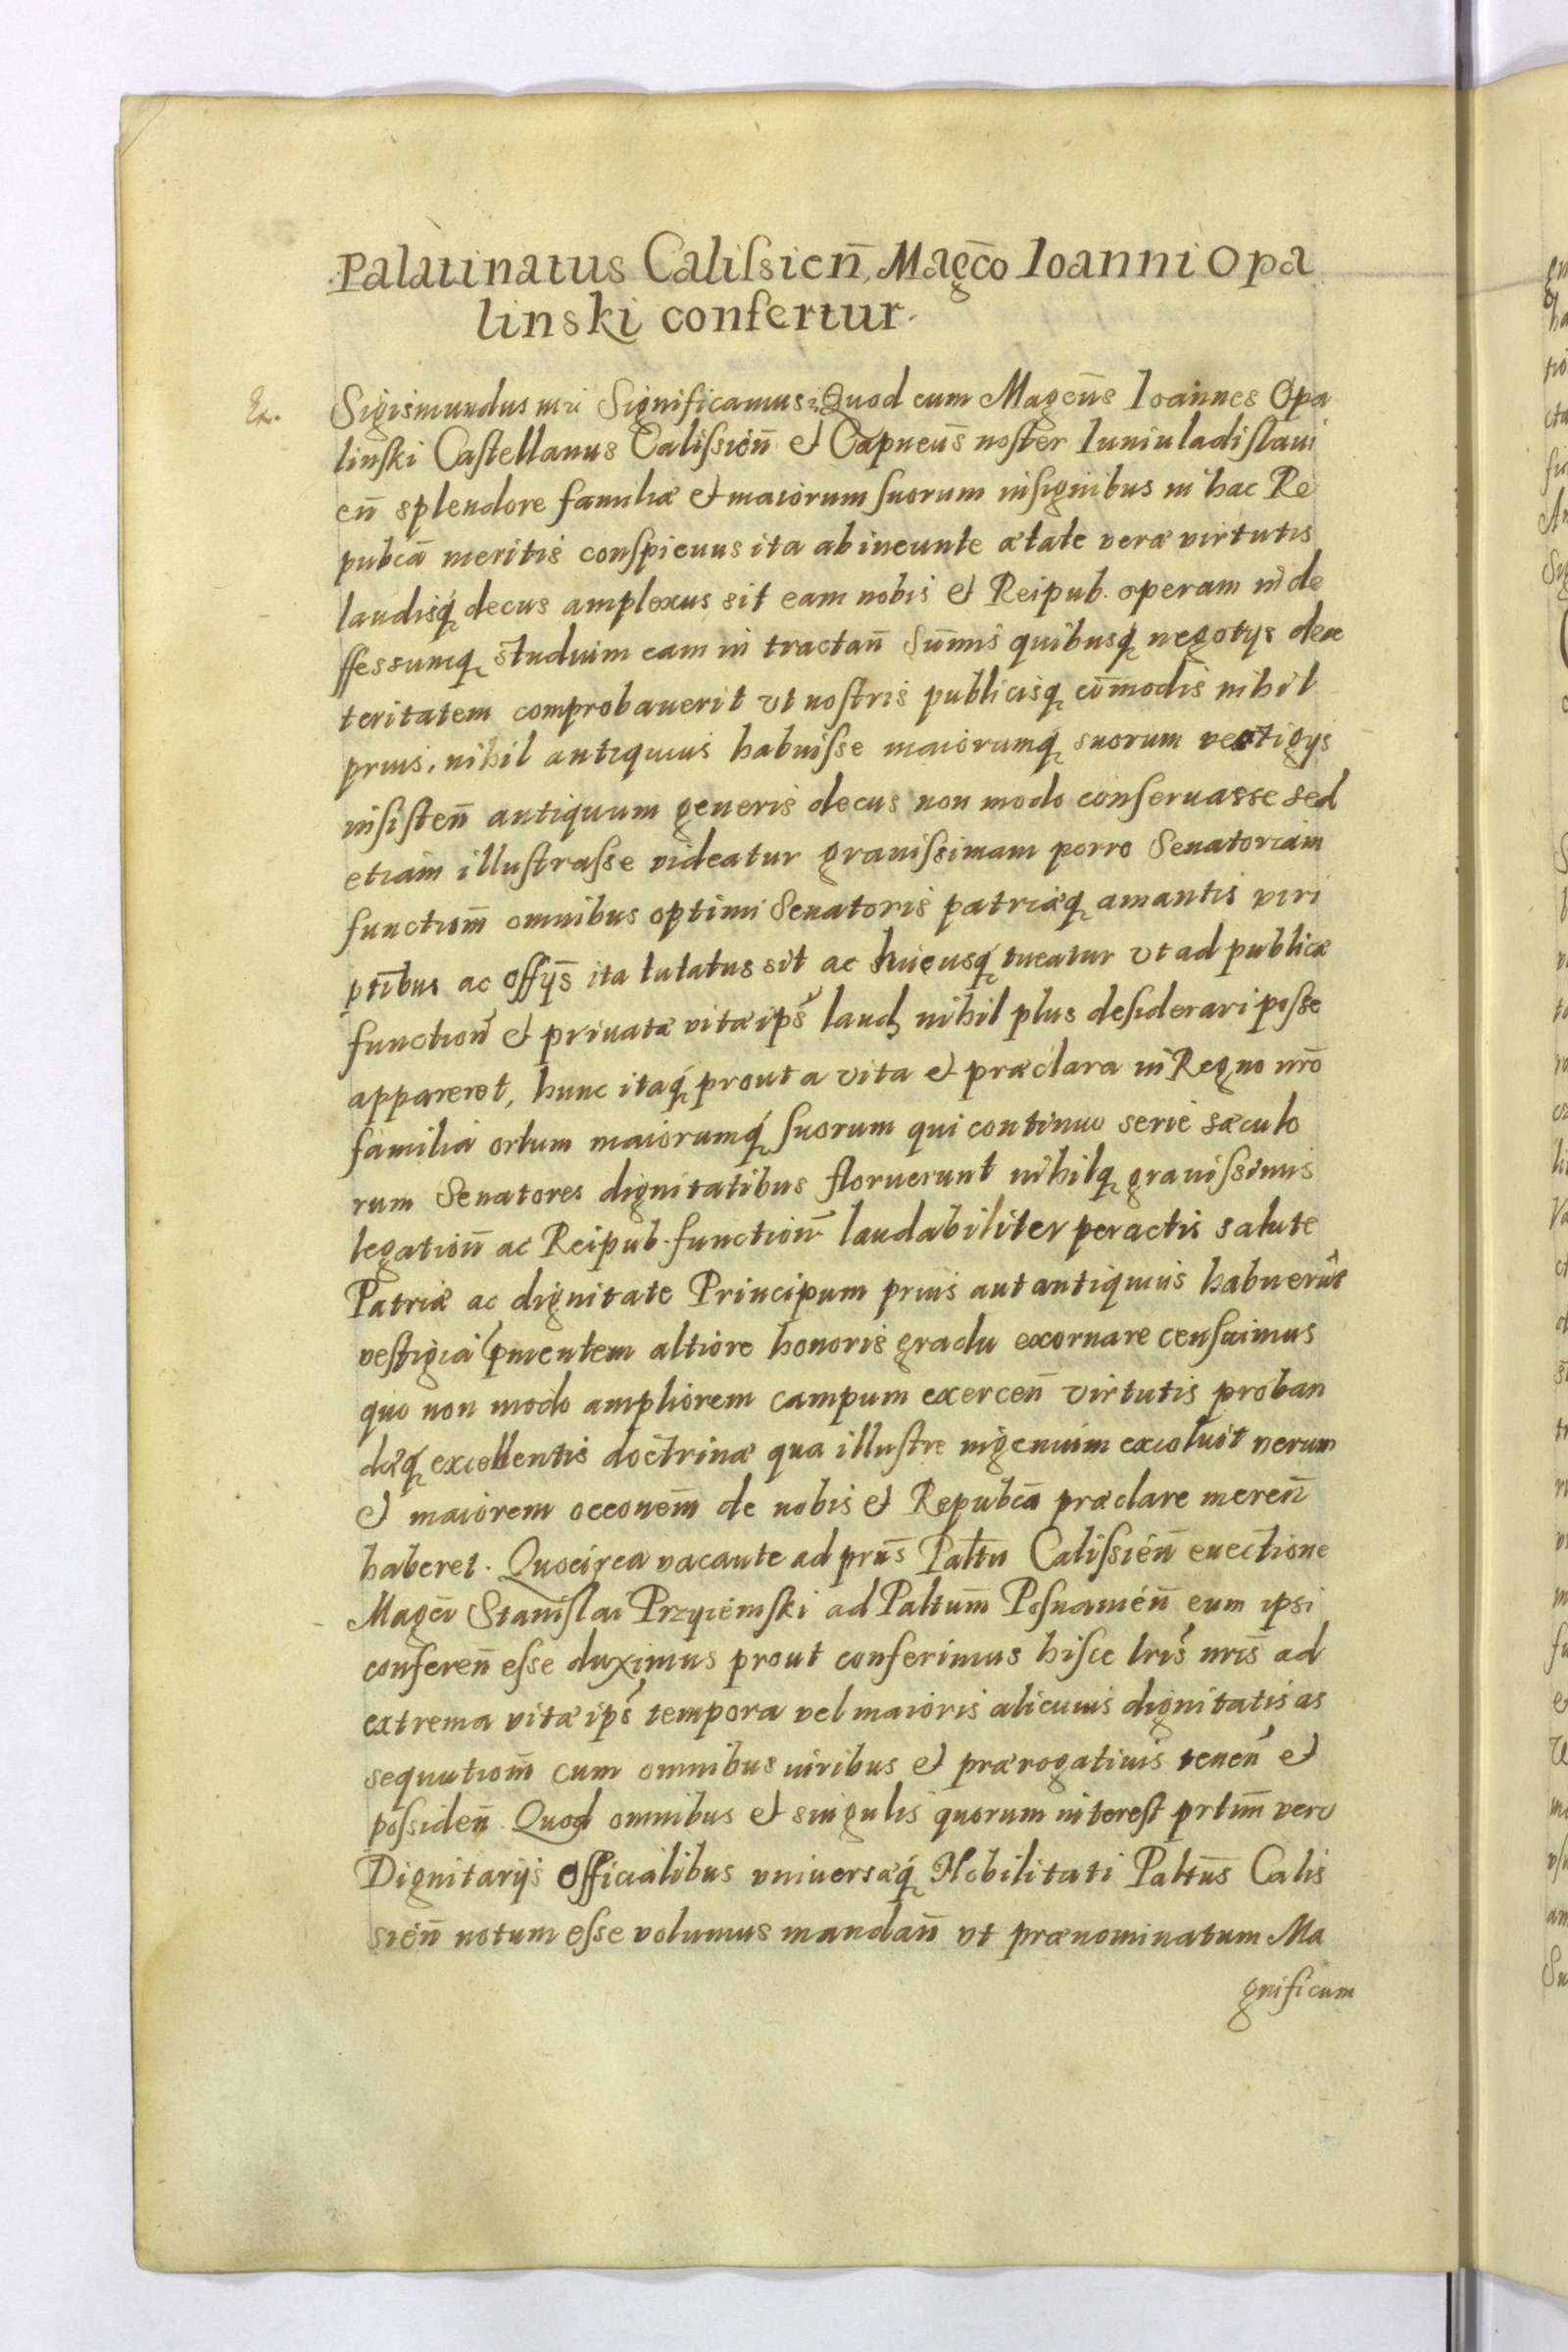 Palatinatus Calissień, Magco Ioanni Opa
linski confertur.
Ex. Sigismundus Significamus Quod cum Magcus Ioannes Opa
linski Castellanus Calissień et Capneus noster Iuniuladislaui
eń splendore familiæ et maiorum suorum insignibus in hac Re
pubcā meritis conspicuus ita ab ineunte ætate veræ virtutis
laudisq decus amplexus sit eam nobis et Reipub. operam inde
ffessumq studium eam in tractań sum̄is quibusq negotys dex
teritatem comprobauerit vt nostris publicisq com̄odis nihil
prius, nihil antiquius habuisse maiorumq suorum vestigys
insisteń antiquum generis decus non modo conseruasse sed
etiam illustrasse videatur grauissimam porro Senatoriam
functiom̄ omnibus optimi Senatoris patriæq amantis viri
ptibus ac offys ita tutatus sit ac hucusq tueatur vt ad publicæ
functioń et priuatæ vitæ ips laud nihil plus desiderari posse
appareret, hunc itaq prout a vita et præclara in Regno nrō
familia ortum maiorumq suorum qui continuo serie sæculo
rum Senatores dignitatibus floruerunt nihilq grauissimis
legatioń ac Reipub. functioń laudabiliter peractis salute
Patriæ ac dignitate Principum prius aut antiquius habuerūt
vestigia pmentem altiore honoris gradu exornare censuimus
quo non modo ampliorem campum exerceń virtutis proban
dæq excellentis doctrinæ qua illustre ingenium excoluit verum
et maiorem occonem̄ de nobis et Repubcā præclare mereń
haberet. Quocirca vacante ad prńs Paltu Calissień euectione
Magci Stanislai Przyiemski ad Paltum̄ Posnanień eum ipsi
confereń esse duximus prout conferimus hisce lris nris ad
extrema vitæ ips tempora vel maioris alicuius dignitatis as
sequutiom̄ cum omnibus iuribus et prærogatiuis teneń et
possideń. Quod omnibus et singulis quorum interest prtim̄ vero
Dignitarijs Officialibus vniuersæq Nobilitati Paltus Calis
sień notum esse volumus mandań vt prænominatum Ma
gnificum